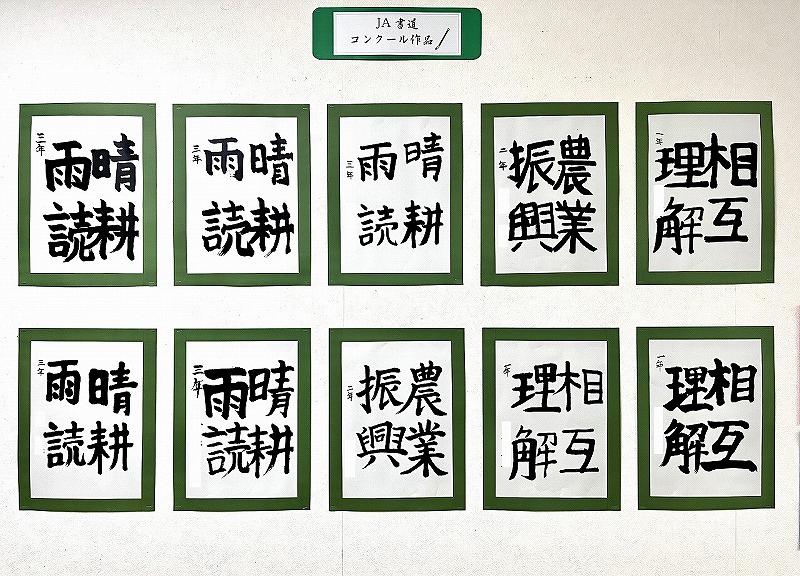 JA 書道
コンクール作品
相互
理解
一年
農業
振興
二年
晴耕
雨読
三年
晴耕
雨読
三年
晴耕
雨読
三年
相互
理解
一年
相互
理解
一年
農業
振興
二年
晴耕
雨読
三年
晴耕
雨読
三年